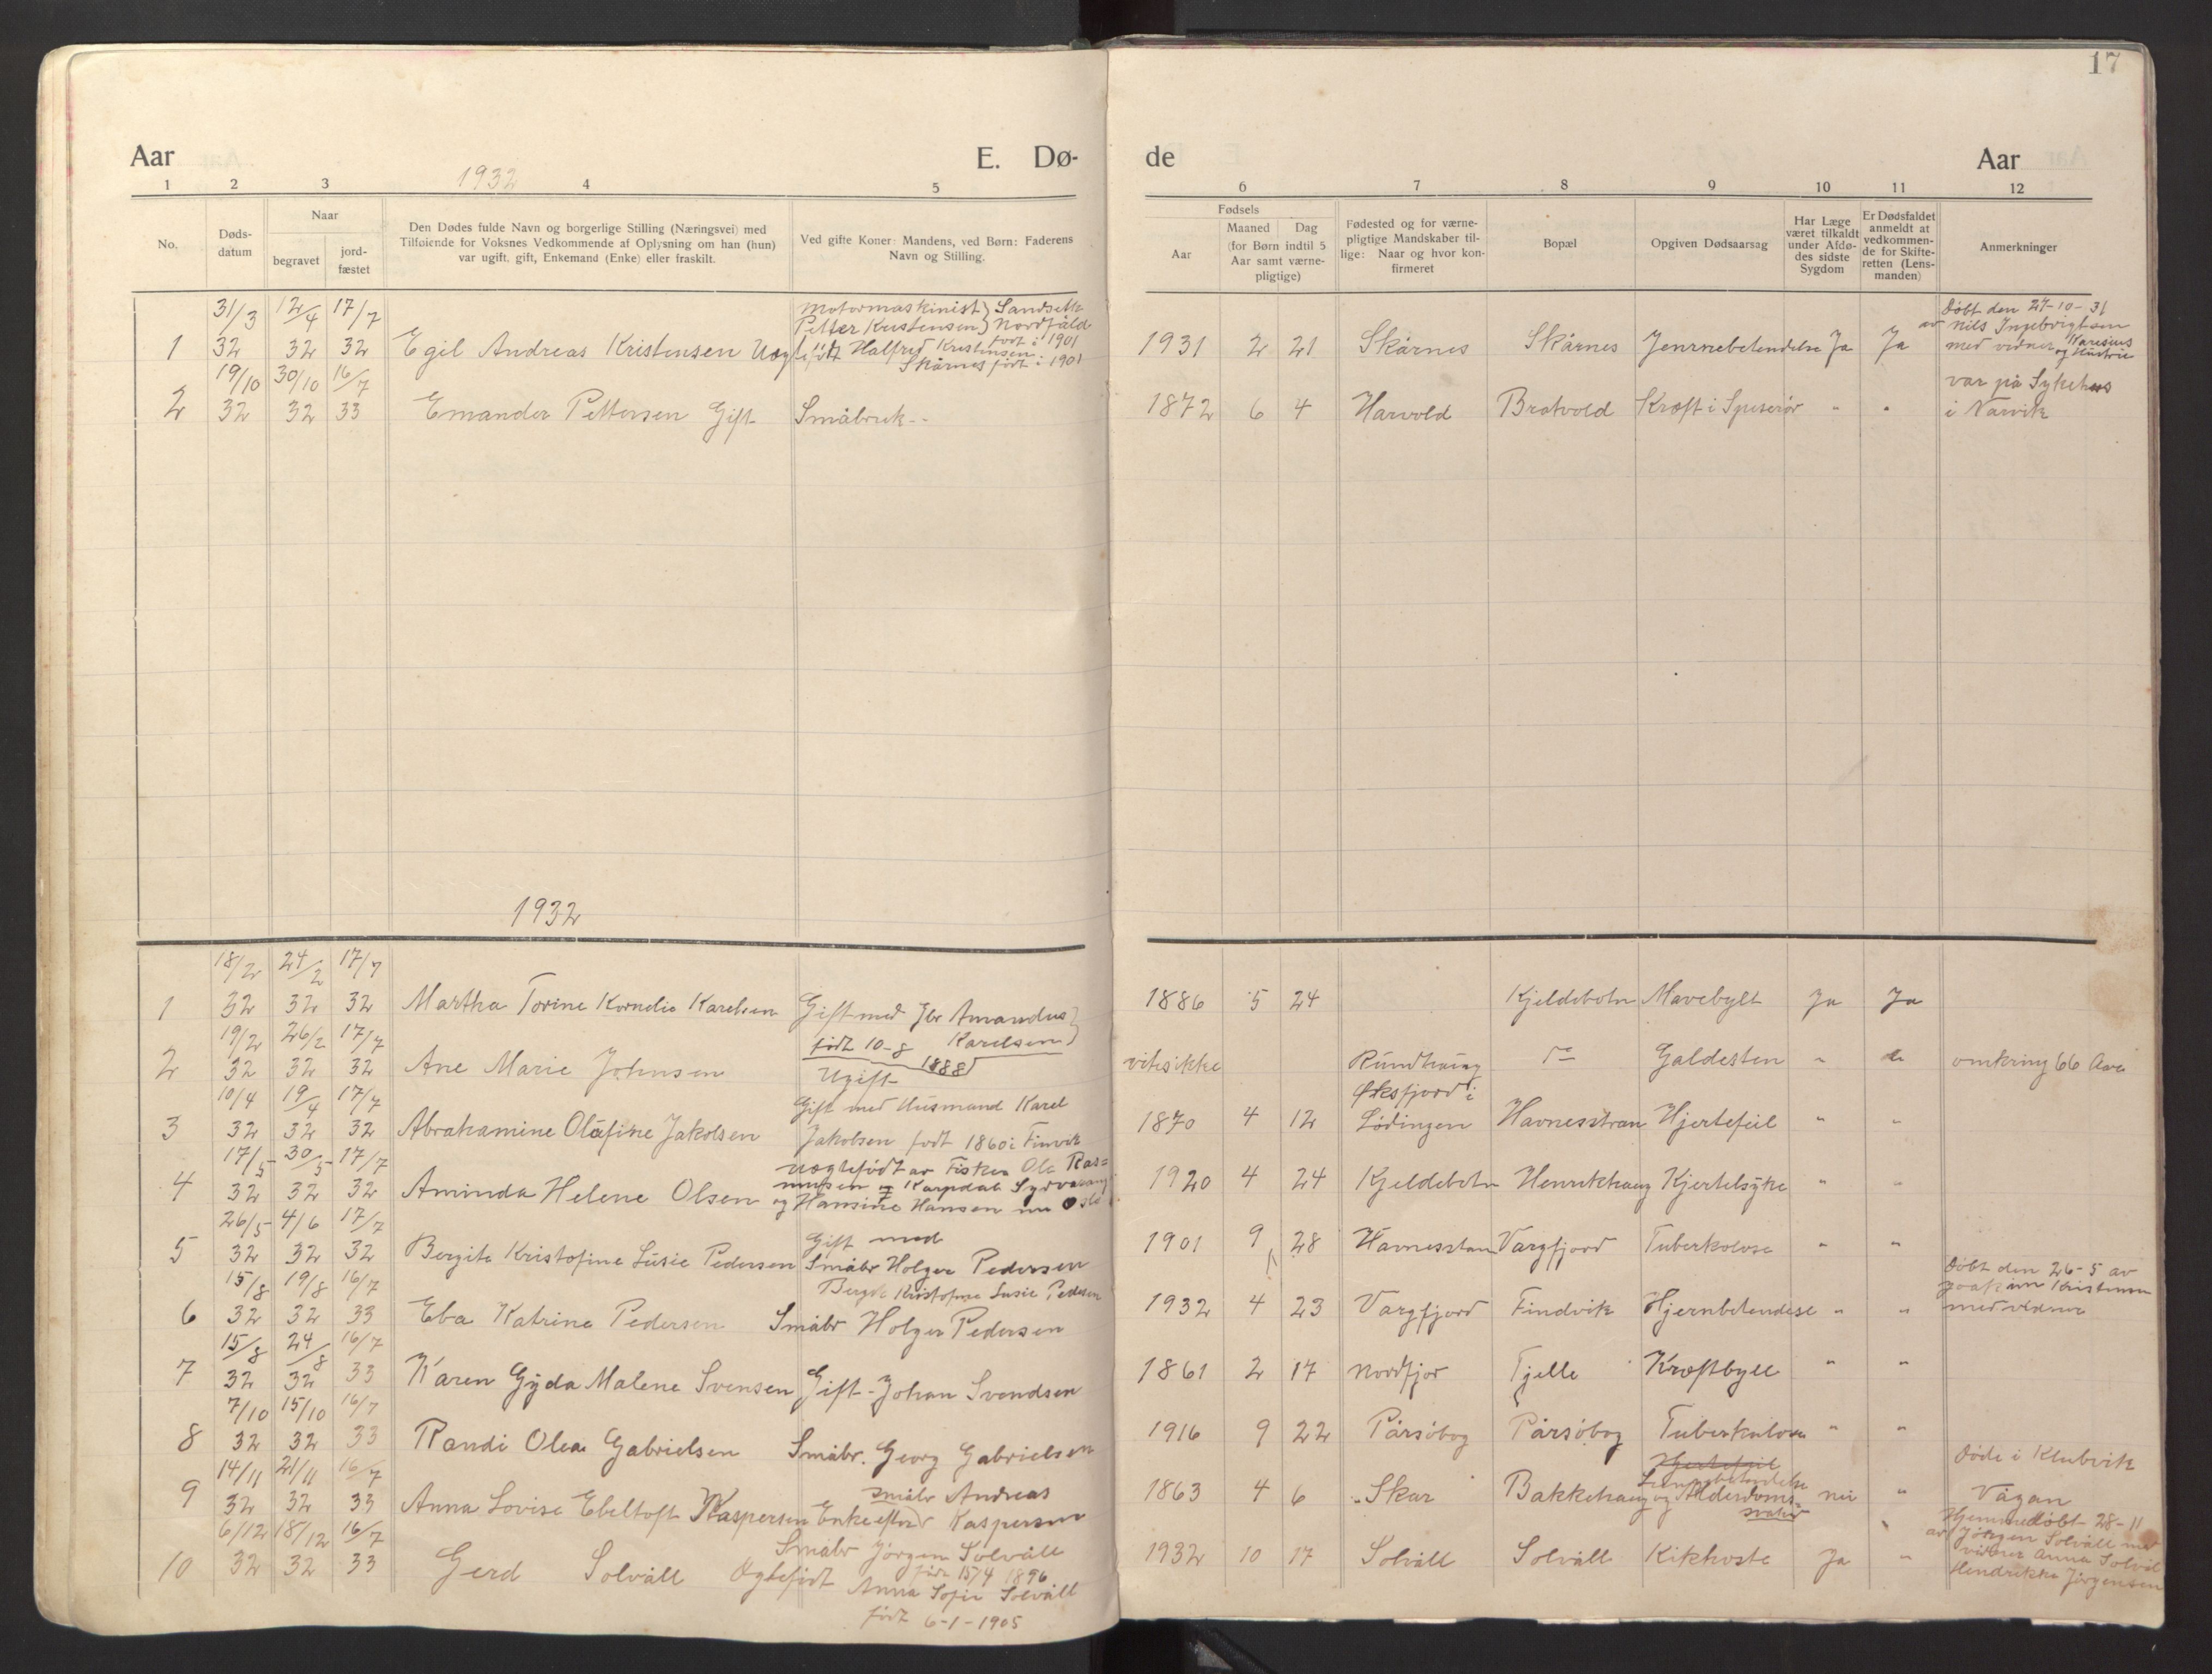 17
Aar
E. Dø-
de
Aar
1932
1
2
3
4
5
6
7
8
9
10
11
12
No.
Døds-
datum
Naar
begravet
jord-
fæstet
Den Dødes fulde Navn og borgerlige Stilling (Næringsvei) med
Tilføiende for Voksnes Vedkommende af Oplysning om han (hun)
var ugift, gift, Enkemand (Enke) eller fraskilt.
Ved gifte Koner: Mandens, ved Børn: Faderens
Navn og Stilling.
Fødsels
Aar
Maaned
Dag
(for Børn indtil 5
Aar samt værne-
pligtige)
Fødested og for værne-
pligtige Mandskaber til-
lige: Naar og hvor kon-
firmeret
Bopæl
Opgiven Dødsaarsag
Har Læge
været tilkaldt
under Afdø-
des sidste
Sygdom
Er Dødsfaldet
anmeldt at
vedkommen-
de for Skifte-
retten (Lens-
manden)
Anmerkninger
31/3 12/4 17/7
Motormaskinist } Sandsetk
Petter Kristensen } Nordfjeld
født i 1901
Døbt den 27-10-31
av Nils Ingebrigtsen
1 32 32 32 Egil Andreas Kristensen Uegtefødt Halfred Kristensen
Skårnes født i 1901
1931 2 21 Skårnes Skårnes Jernnebetendelse Ja Ja med vidner og Hustru
19/10 30/10 16/7
var på Sykehus
2 32 32 33 Emander Pettersen Gift Småbruk -- 1872 6 4 Harvold Bratvold Kræft i Spiserør " " i Narvik
1932
18/2 24/2 17/7
1 32 32 32 Martha Torine Kornelie Karelsen Gift med Jbr Amandus
Karelsen
født 10-8 1888
1886 5 24 Kjeldebotn Mavebylt Ja Ja
19/2 26/2 17/7
2 32 32 32 Ane Marie Johnsen Ugift vites ikke Rundhaug do Galdesten " " omkring 66 Aar
10/4 19/4 17/7
Gift med Husmand Karel
Øksfjord i
3 32 32 32 Abrahamine Olåfine Jakobsen Jakobsen født 1860 i Finvik 1870 4 12 Lødingen Havnesstran Hjertefeil " "
17/5 30/5 17/7
uegtefødt av Fisker Ole Ras=
mussen
4 32 32 32 Aminda Helene Olsen og Hansine Hansen nu Oslo 1920 4 24 Kjeldebotn Henrikhaug Kjertelsyke " "
26/5 4/6 17/7
Gift med
5 32 32 32 Bergite Kristofine Lusie Pedersen Småbr Holger Pedersen 1901 9 28 Havnesstan Vargfjord Tuberkolose " "
15/8 19/8 16/7
Bergite Kristofine Lusie Pedersen
Døbt den 26-5 av
Joakim Kristensen
6 32 32 33 Eba Katrine Pedersen Småbr Holger Pedersen 1932 4 23 Vargfjord Findvik Hjernbetendese " " med vidner
15/8 24/8 16/7
7 32 32 33 Karen Gyda Malene Svensen Gift - Johan Svendsen 1861 2 17 Nordfjor Tjelle Kræftbyll " "
7/10 15/10 16/7
8 32 32 33 Randi Olea Gabrielsen Småbr. Georg Gabrielsen 1916 9 22 Pårsøbog Pårsøbog Tuberkulose " "
14/11 21/11 16/7
småbr Andreas
Hjertefeil
Lungebetendelse
Døde i Klubvik
9 32 32 33 Anna Lovise Ebeltoft Kaspersen Enke efter Kaspersen 1863 4 6 Skar Bakkehaug og Alderdoms= nei " Vågan
svakhed
6/12 18/12 16/7
Småbr Jørgen Solvåll
født 15/4 1896
Hjemmedøbt 28-11
av Jørgen Solvåll med
10 32 32 33 Gerd Solvåll Ægtefødt Anna Sofie Solvåll
født 6-1-1905
1932 10 17 Solvåll Solvåll Kikhoste Ja " vidner Anna Solvåll
Hendrikke Jørgensen